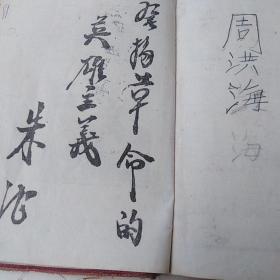 周洪海海
發揚革命的
英雄主義
朱德